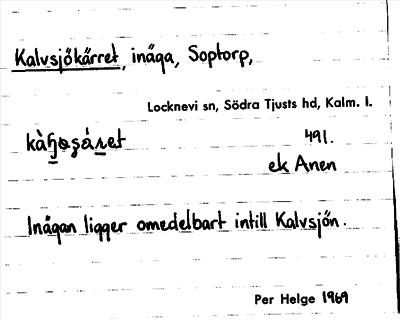 Kalvsjökärret, inäga, Soptorp,
Locknevi sn, Södra Tjusts hd, Kalm. l.
491.
ek Anen
Inägan ligger omedelbart intill Kalvsjön.
Per Helge 1969